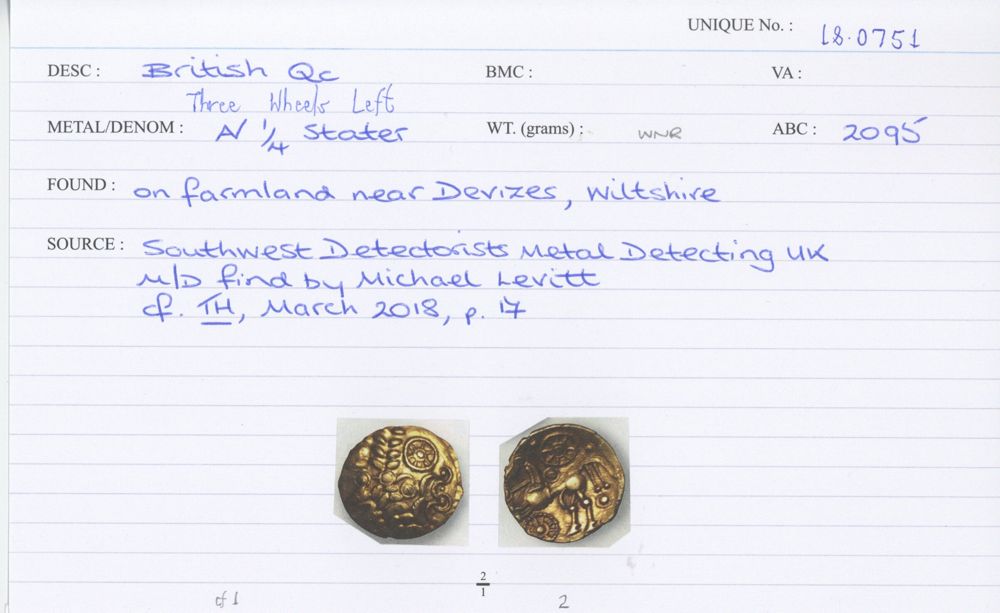 UNIQUE No. : 18.0751
DESC : British Qc BMC : VA :
Three Wheels Left
METAL/DENOM : A/ 1/4 Stater WT. (grams) : WNR ABC : 2095
FOUND : on farmland near Devizes, Wiltshire
SOURCE : Southwest Detectorists Metal Detecting UK
M/D find by Michael Levitt
cf. TH, March 2018, p. 17
2
1
cf 1 2